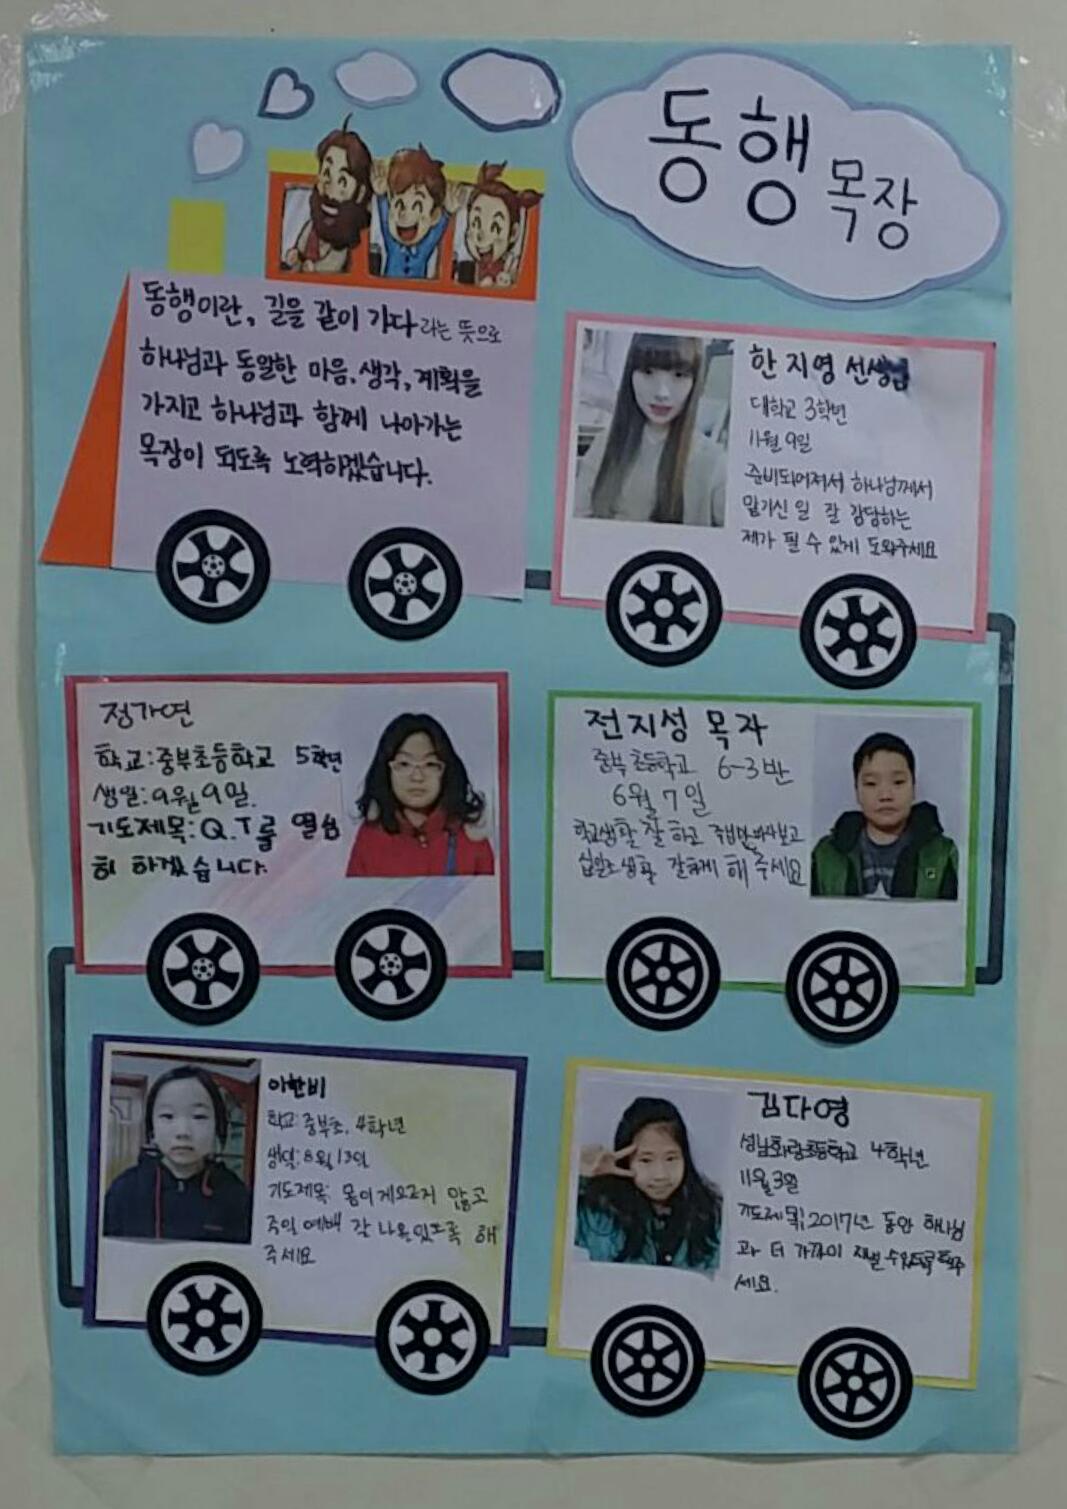 동행 목장
동행이란, 길을 같이 가다 라는 뜻으로
하나님과 동일한 마음, 생각, 계획을
가지고 하나님과 함께 나아가는
목장이 되도록 노력하겠습니다.
한지영 선생님
대학교 3학년
11월 9일
준비되어져서 하나님께서
맡기신 일 잘 감당하는
제가 될 수 있게 도와주세요
정가연
학교:중부초등학교 5학년
생일:9월 9일.
기도제목:Q.T를 열심
히 하겠습니다.
전지성 목자
중부초등학교 6-3반
6월 7일
학교생활 잘 하고
십일조 생활 잘하게 해 주세요
이한비
학교:중부초, 4학년
생일:8월 13일
기도제목: 몸이 게으르지 않고
주일 예배 잘 나올 있도록 해
주세요
김다영
성남화랑초등학교 4학년
11월 3일
기도제목:2017년 동안 하나님
과 더 가까이 지낼 수 있도록 해주
세요.